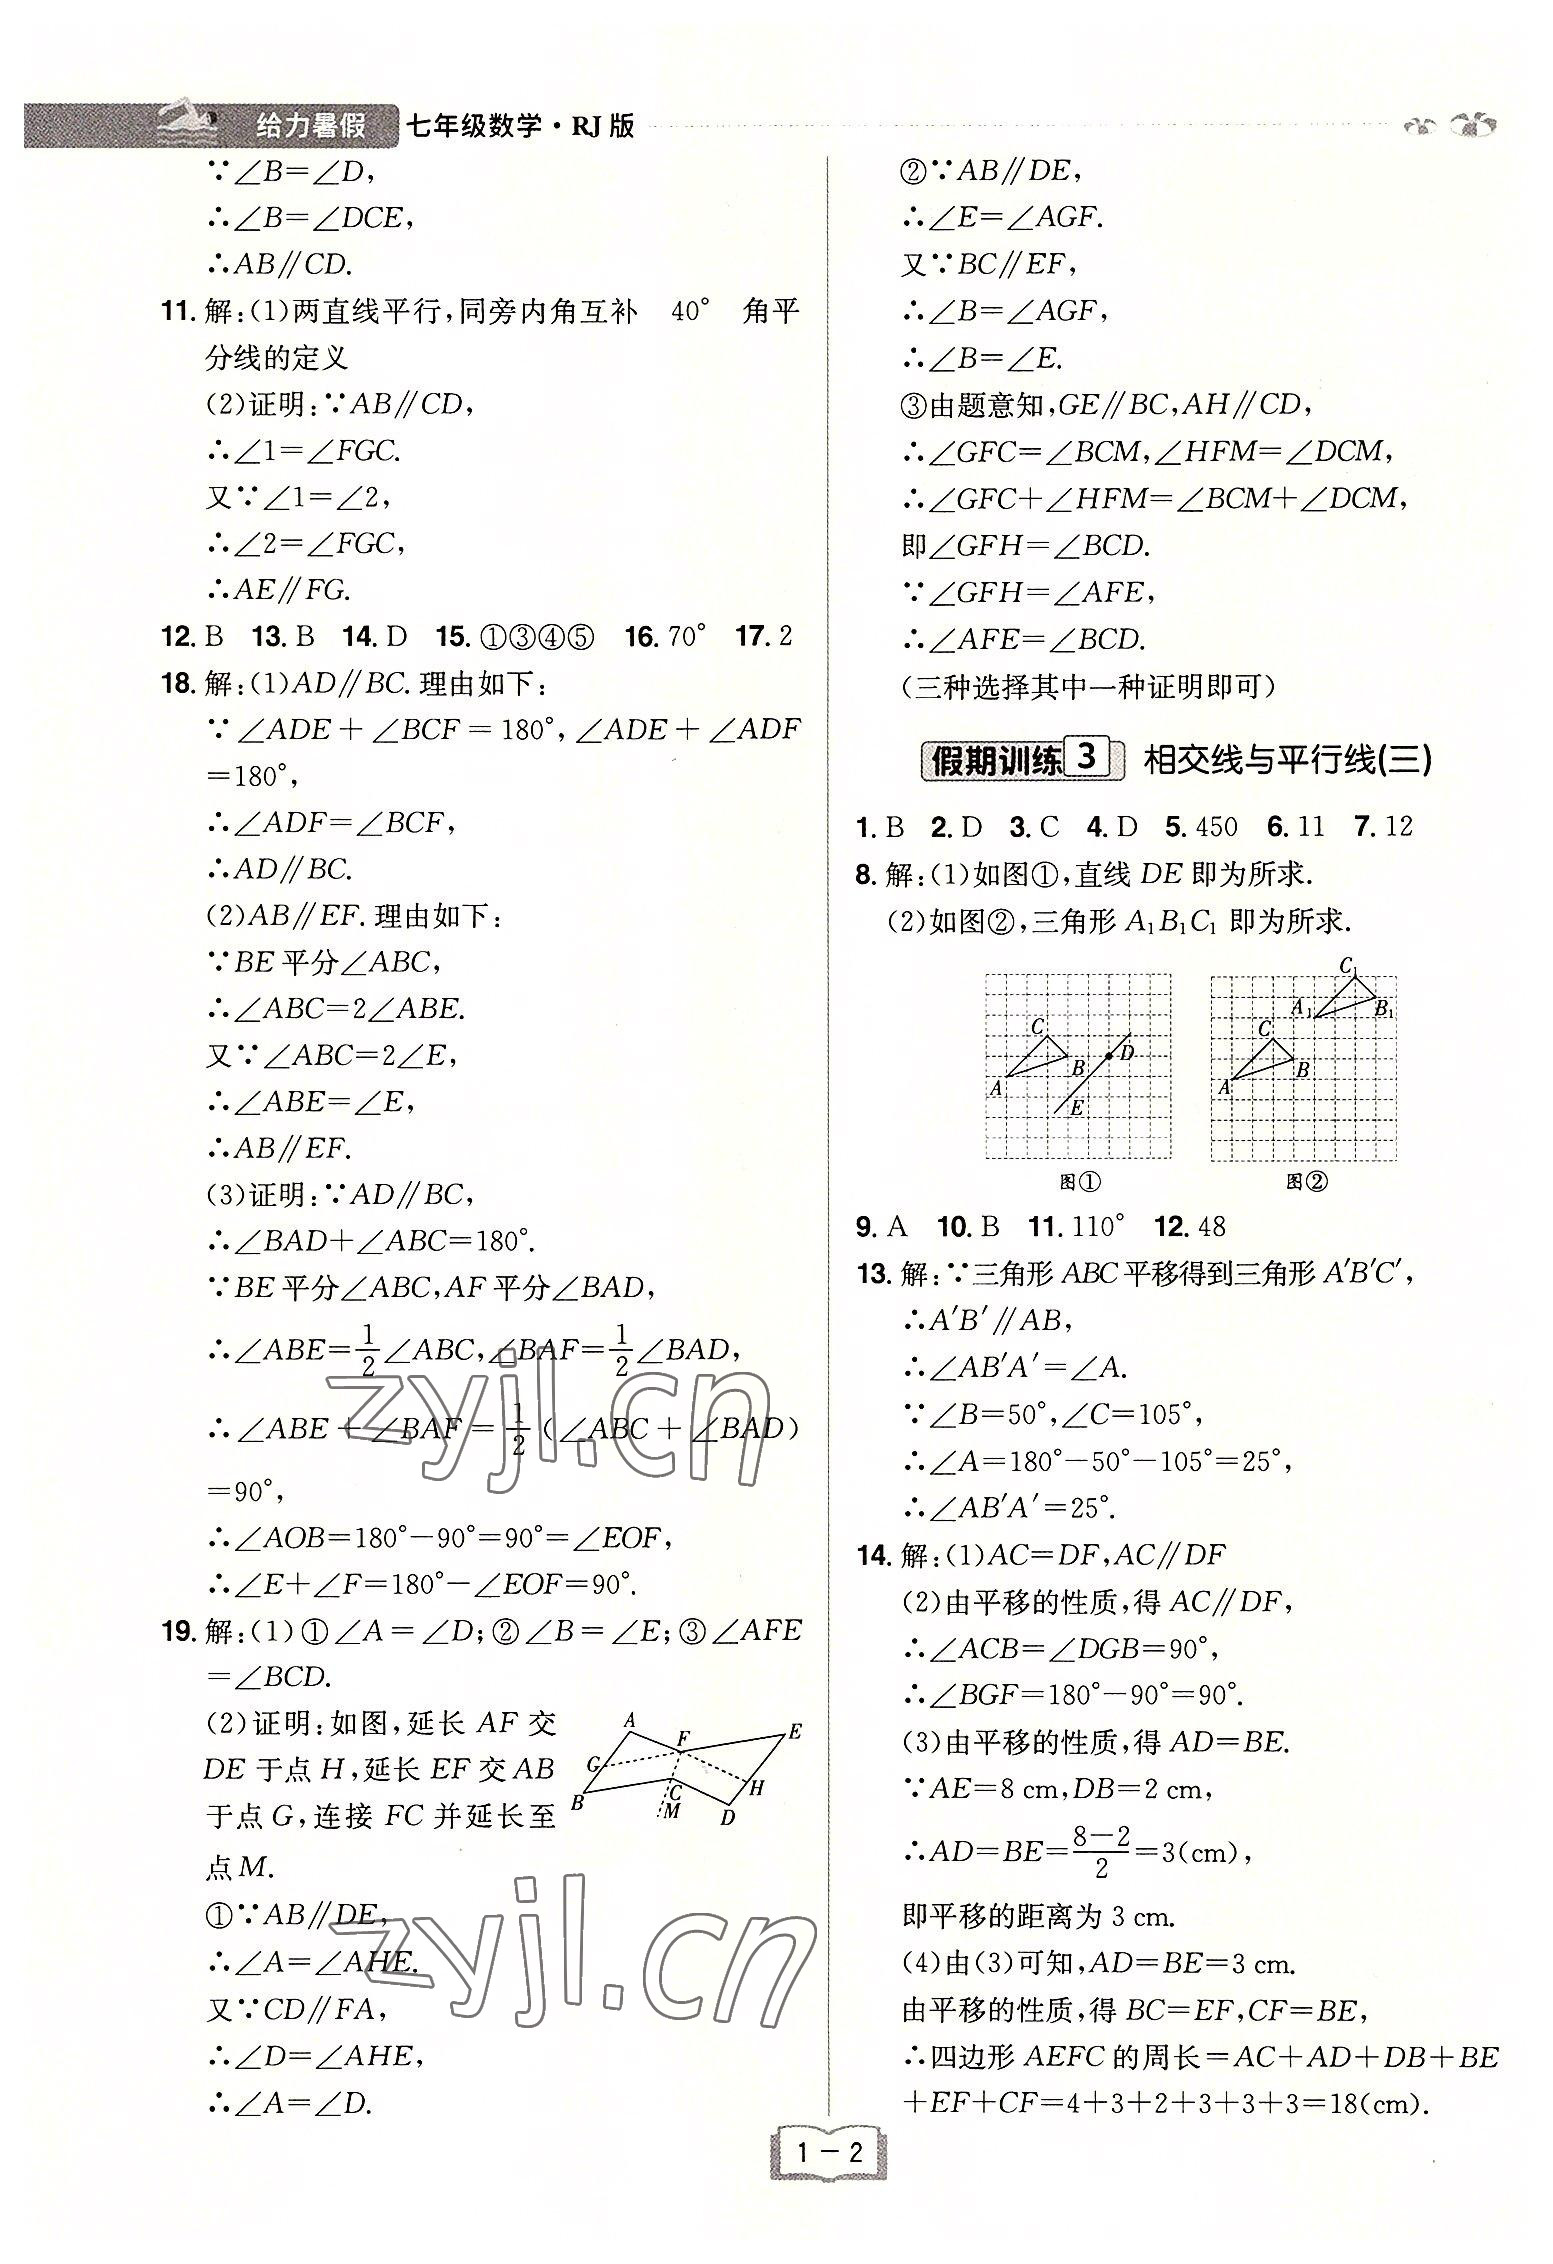 给力暑假 七年级数学·RJ版
∵∠B=∠D,
∴∠B=∠DCE,
∴AB∥CD.
11. 解:(1)两直线平行,同旁内角互补 40° 角平
分线的定义
(2)证明:∵AB∥CD,
∴∠1=∠FGC.
又∵∠1=∠2,
∴∠2=∠FGC,
∴AE∥FG.
12. B 13. B 14. D 15. ①③④⑤ 16. 70° 17. 2
18. 解:(1)AD∥BC.理由如下:
∵∠ADE+∠BCF=180°,∠ADE+∠ADF
=180°,
∴∠ADF=∠BCF,
∴AD∥BC.
(2)AB∥EF.理由如下:
∵BE平分∠ABC,
∴∠ABC=2∠ABE.
又∵∠ABC=2∠E,
∴∠ABE=∠E,
∴AB∥EF.
(3)证明:∵AD∥BC,
∴∠BAD+∠ABC=180°.
∵BE平分∠ABC,AF平分∠BAD,
∴∠ABE=1/2∠ABC,∠BAF=1/2∠BAD,
∴∠ABE+∠BAF=1/2(∠ABC+∠BAD)
=90°,
∴∠AOB=180°-90°=90°=∠EOF,
∴∠E+∠F=180°-∠EOF=90°.
19. 解:(1)①∠A=∠D;②∠B=∠E;③∠AFE
=∠BCD.
(2)证明:如图,延长AF交
DE于点H,延长EF交AB
于点G,连接FC并延长至
点M.
A F E G B C M D H
①∵AB∥DE,
∴∠A=∠AHE.
又∵CD∥FA,
∴∠D=∠AHE,
∴∠A=∠D.
②∵AB∥DE,
∴∠E=∠AGF.
又∵BC∥EF,
∴∠B=∠AGF,
∴∠B=∠E.
③由题意知,GE∥BC,AH∥CD,
∴∠GFC=∠BCM,∠HFM=∠DCM,
∴∠GFC+∠HFM=∠BCM+∠DCM,
即∠GFH=∠BCD.
∵∠GFH=∠AFE,
∴∠AFE=∠BCD.
(三种选择其中一种证明即可)
假期训练3 相交线与平行线(三)
1. B 2. D 3. C 4. D 5. 450 6. 11 7. 12
8. 解:(1)如图①,直线DE即为所求.
(2)如图②,三角形A₁B₁C₁即为所求.
C A B D E
C₁ A₁ B₁ C A B
图① 图②
9. A 10. B 11. 110° 12. 48
13. 解:∵三角形ABC平移得到三角形A′B′C′,
∴A′B′∥AB,
∴∠AB′A′=∠A.
∵∠B=50°,∠C=105°,
∴∠A=180°-50°-105°=25°,
∴∠AB′A′=25°.
14. 解:(1)AC=DF,AC∥DF
(2)由平移的性质,得AC∥DF,
∴∠ACB=∠DGB=90°,
∴∠BGF=180°-90°=90°.
(3)由平移的性质,得AD=BE.
∵AE=8 cm,DB=2 cm,
∴AD=BE=(8-2)/2=3(cm),
即平移的距离为3 cm.
(4)由(3)可知,AD=BE=3 cm.
由平移的性质,得BC=EF,CF=BE,
∴四边形AEFC的周长=AC+AD+DB+BE
+EF+CF=4+3+2+3+3+3=18(cm).
1-2
zyjl.cn
zyjl.cn